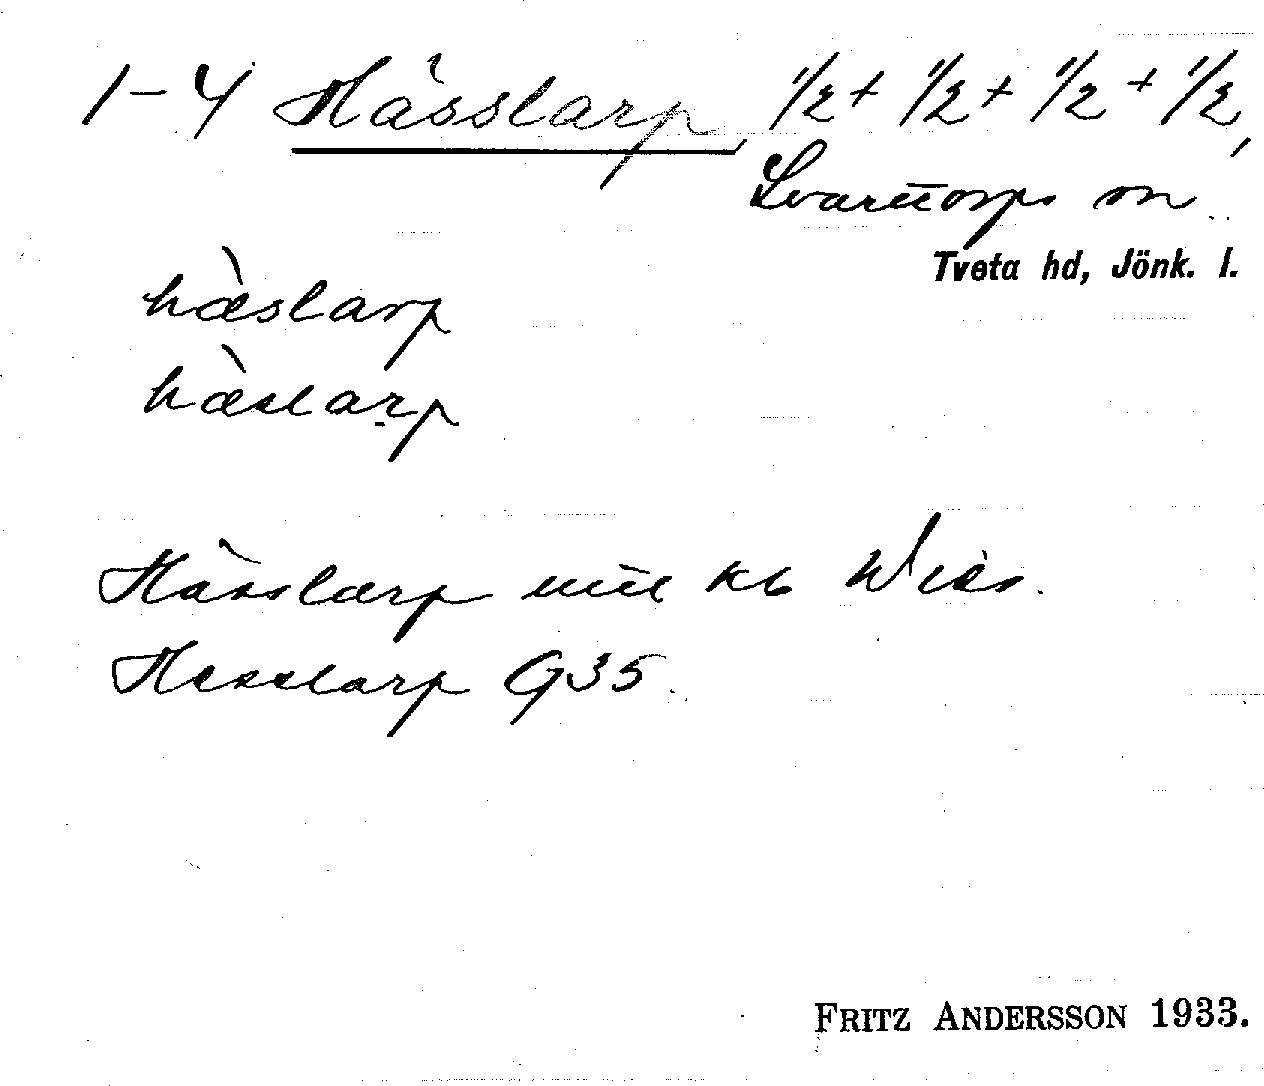 1-4 Hässlarp, 1/2 + 1/2 + 1/2 + 1/2,
Svarttorps sn
Tveta hd, Jönk. l.
hæ̀slarp
hæ̀slarp
Hässlarp utt kb Wiss.
Hesslarp G35.
FRITZ ANDERSSON 1933.